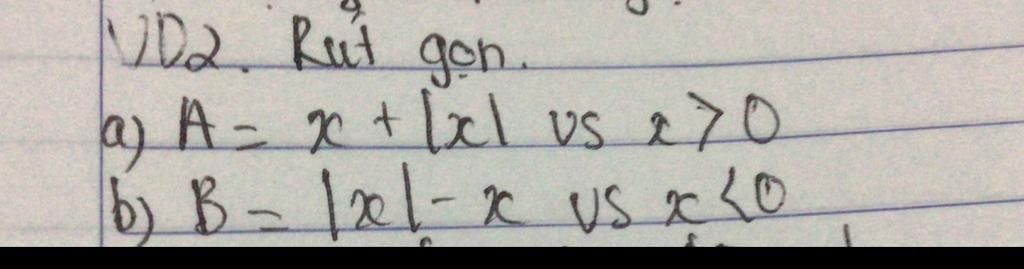 VD2. Rút gọn.
a) A = x + |x| vs x > 0
b) B = |x| - x vs x < 0